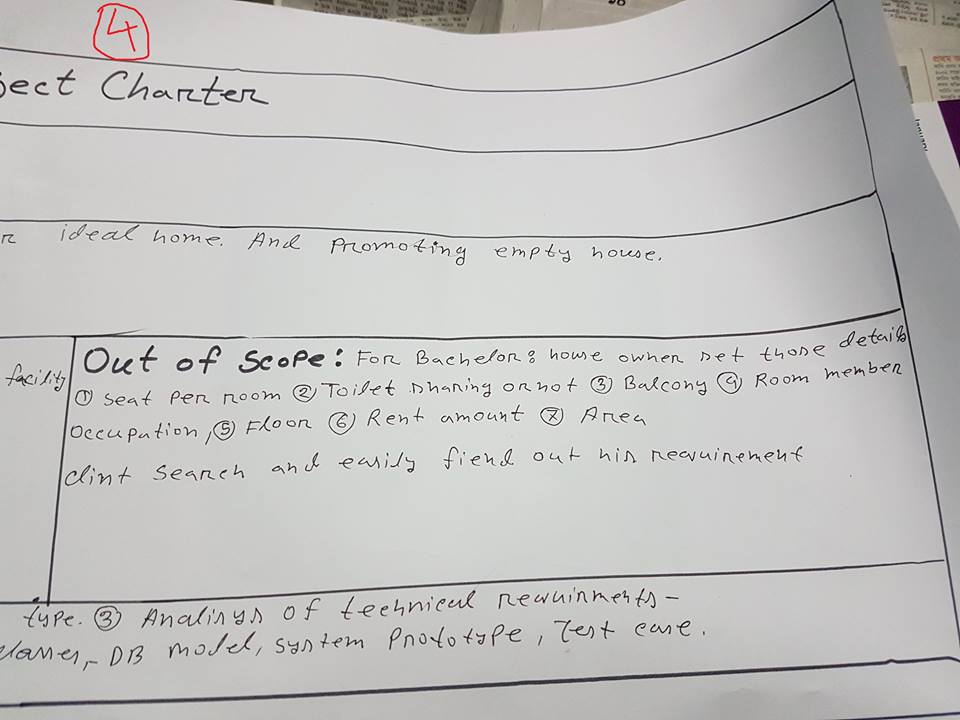 4
ject Charter
r ideal home. And Promoting empty house.
facility
Out of Scope: For Bachelor: house owner set those details
① Seat Per room ② Toilet sharing or not ③ Balcony ④ Room member
Occupation, ⑤ Floor ⑥ Rent amount ⑦ Area
clint search and easily fiend out his requirement
type. ③ Analisys of technical requirments-
DB model, system Prototype, Test case.
January